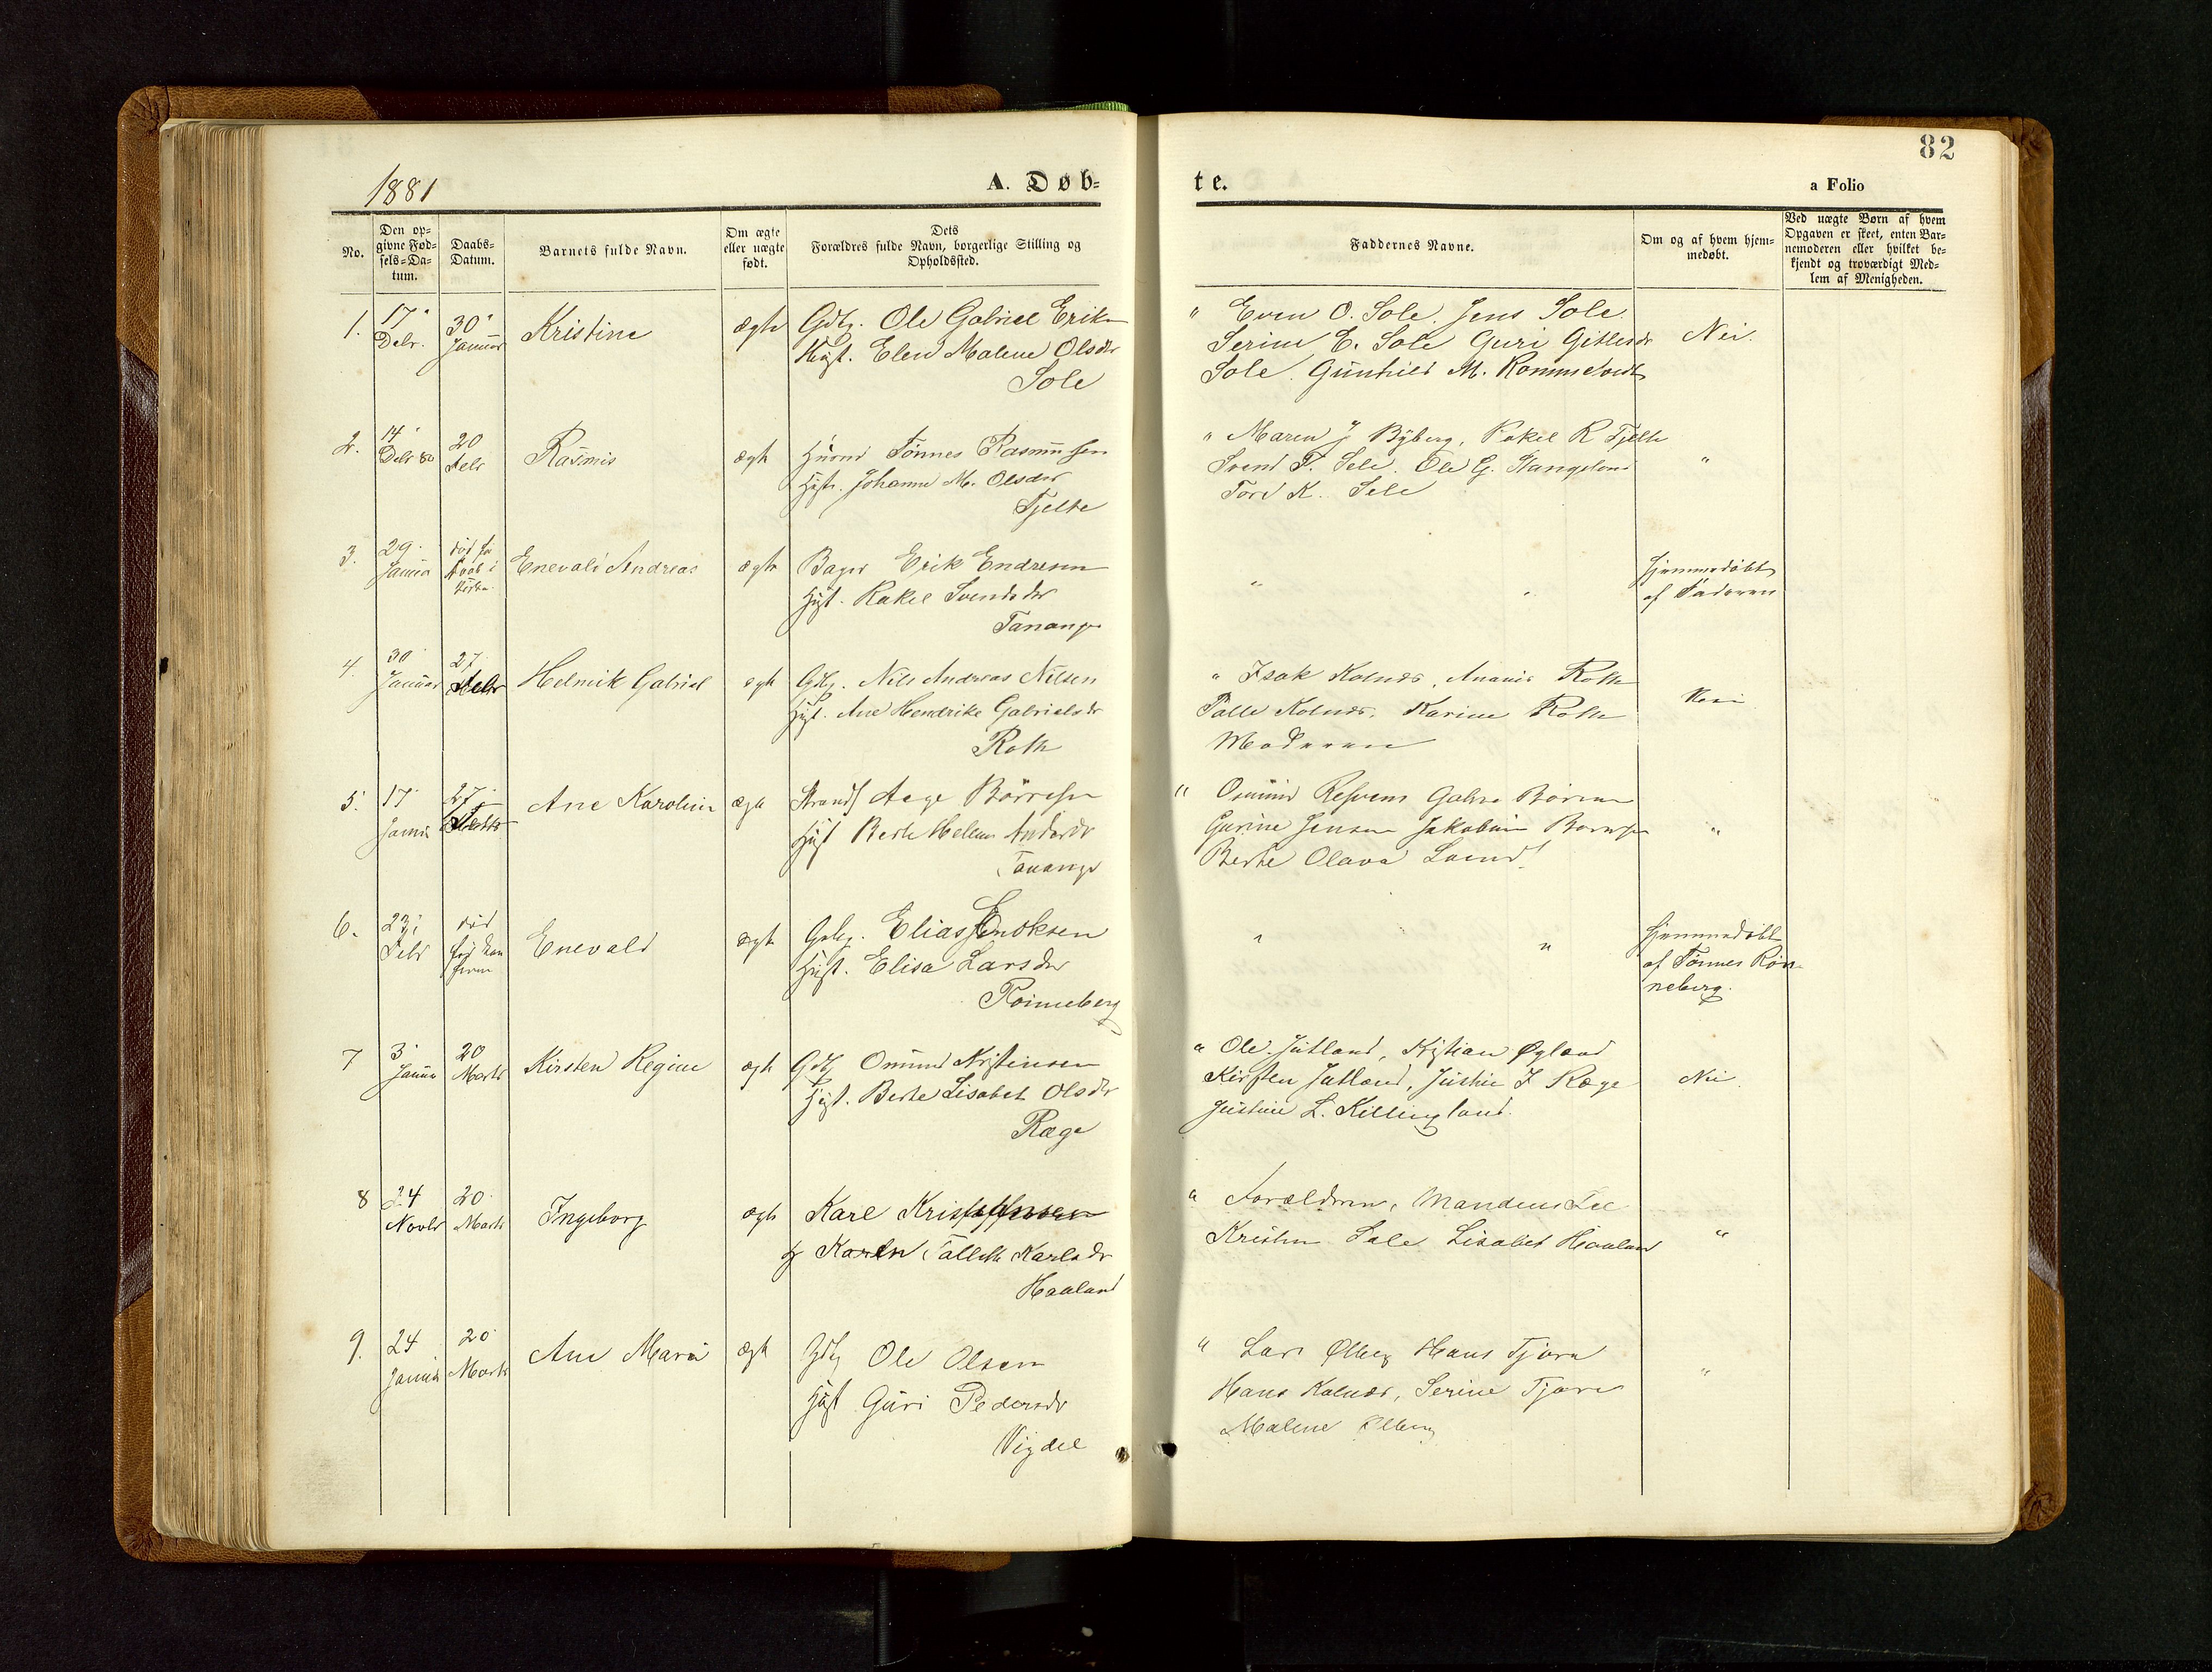 82
1881
A. Døb=
te.
a Folio
No.
Den op=
givne Fød=
sels=Da=
tum.
Daabs=
Datum.
Barnets fulde Navn.
Om ægte
eller uægte
født.
Dets
Forældres fulde Navn, borgerlige Stilling og
Opholdssted.
Faddernes Navne.
Om og af hvem hjem=
medøbt.
Ved uægte Børn af hvem
Opgaven er skeet, enten Bar=
nemoderen eller hvilket be=
kjendt og troværdigt Med=
lem af Menigheden.
1.
17
Debr.
30
Januar
Kristine
ægte
Gdbr. Ole Gabriel Eriks
Hust. Elen Malene Olsdtr
Sole
" Even O. Sole. Jens Sole.
Serine E. Sole Guri Gitlesdr
Sole. Gunhild M. Rommetvedt
Nei.
2.
14
Debr 80
20
Febr
Rasmus
ægte
Tönnes Rasmussen
Hustr. Johanne M. Olsdtr
Tjelte
" Maren J Byberg, Rakel R Tjelte
Svend T. Sele. Ole G. Stangeland
Tore K. Sele
"
3.
29
Janua
død før
Daab i
Kirken
Enevald Andreas
ægte
Erik Endresen
Hust. Rakel Svendsdtr
Tananger
"
"
Hjemmedöbt
af Faderen
4.
30
Januar
27
Febr
Helmik Gabriel
ægte
Gdbr. Nils Andreas Nilsen
Hust. Ane Hendrike Gabrielsdr
Roth
" Isak Kolnæs, Ananias Roth
Tolle Kolnæs, Karine Roth
Moderen
Nei
5.
17
Janua
27
Febr
Ane Karoline
ægte
Strands. Aage Börresen
Hust Berte Helene Andersdr
Tananger
" Osmund Gabr. Börresen
Gurine Jensen Jakobine Börresen
Berte Olava Lund
"
6.
23
Febr
död
før
Enevald
ægte
Gdbr. Elias Enoksen
Hust. Elisa Larsdtr
Rönneberg
"
"
Hjemmedöbt
af Tönnes Rön-
neberg.
7
3
Janua
20
Marts
Kirsten Regine
ægte
Gdbr Osmund Kristensen
Hust. Berte Lisabet Olsdtr
Ræge
" Ole Jutland, Kristian Øgland
Kirsten Jutland, Justine J Ræge
Justine L. Killingland.
Nei.
8
24
Novbr
20
Marts
Ingeborg
ægte
Karl Kristoffersen
H Karen Tallette Karlsdr
Haaland
" Forældrene, Mandens
Kristen Sole Lisabet Haaland
"
9.
24
Janua
20
Marts
Ane Maria
ægte
Gdbr Ole Olsen
Hust Guri Pedersdr
Vigdel
" Lars Ølberg Hans Tjora
Hans Kolnæs, Serine Tjora
Malene Ølberg
"